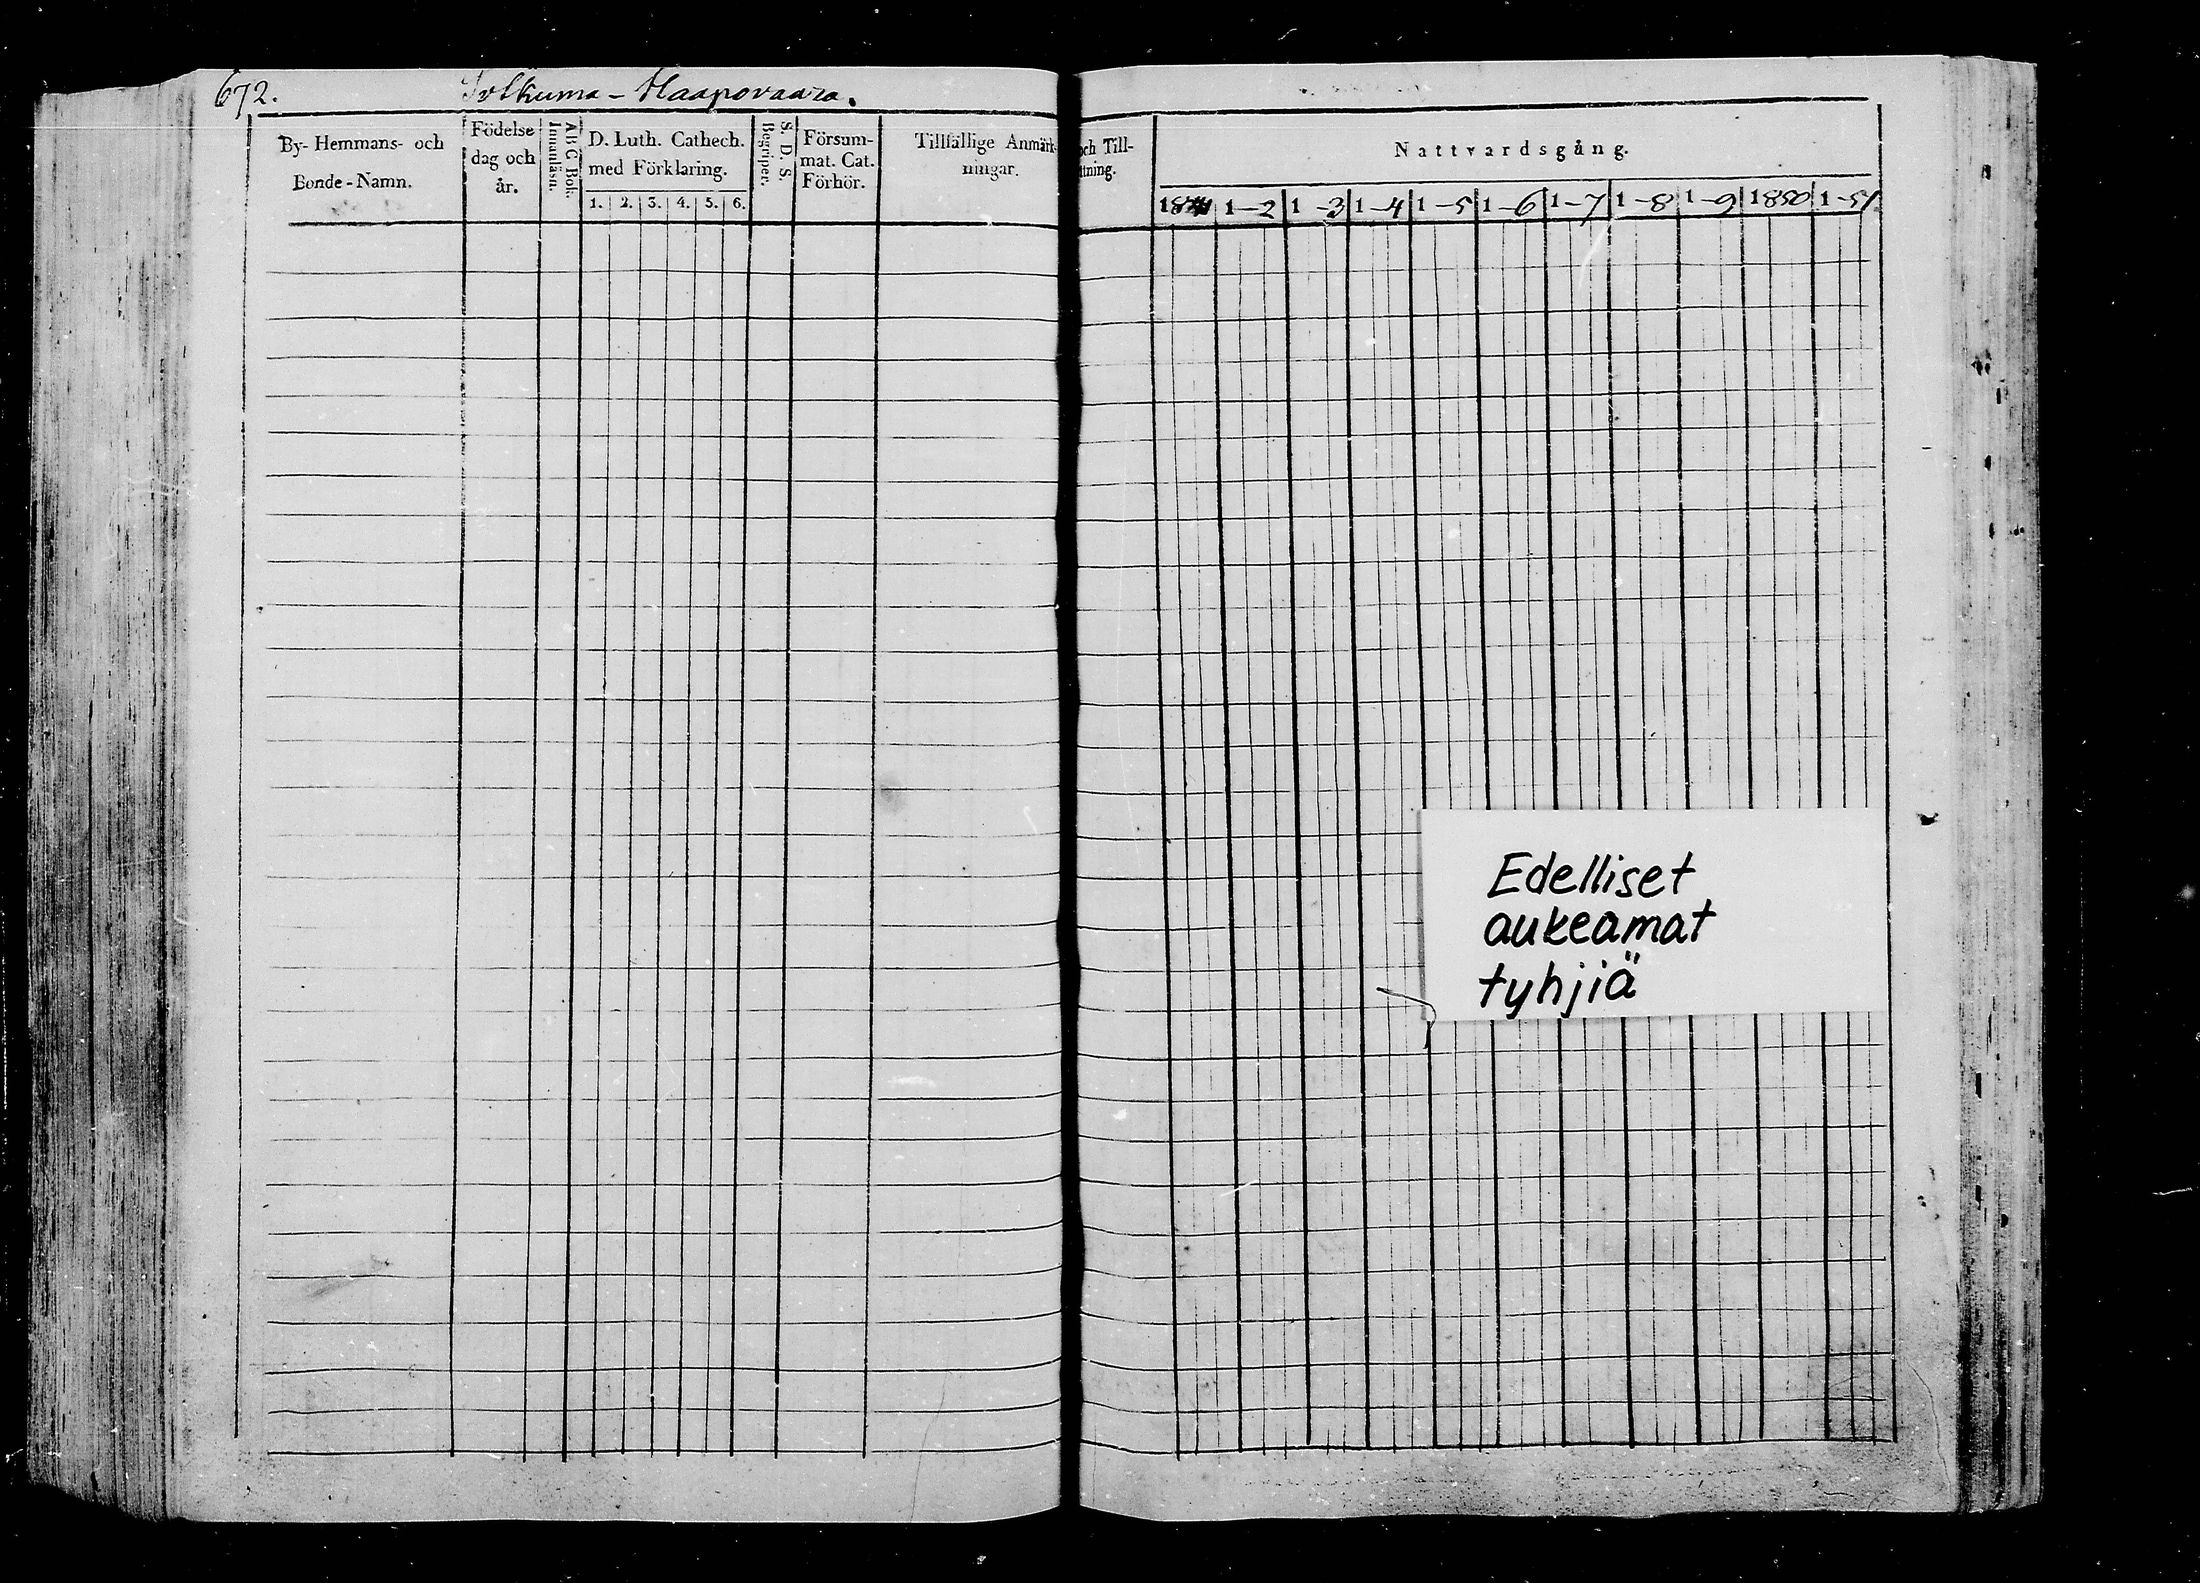 672. Sotkuma - Haapovaara.
By- Hemmans- och
Bonde-Namn.
Födelse
dag och
år.
A B C Bok.
Innanläsn.
D. Luth. Cathech.
med Förklaring.
1. 2. 3. 4. 5. 6.
S. D. S.
Begriper.
Försum-
mat. Cat.
Förhör.
Tillfällige Anmärk-
ningar.
och Till-
tning.
Nattvardsgång.
1-2 1-3 1-4 1-5 1-6 1-7 1-8 1-9 1850 1-51
Edelliset
aukeamat
tyhjiä